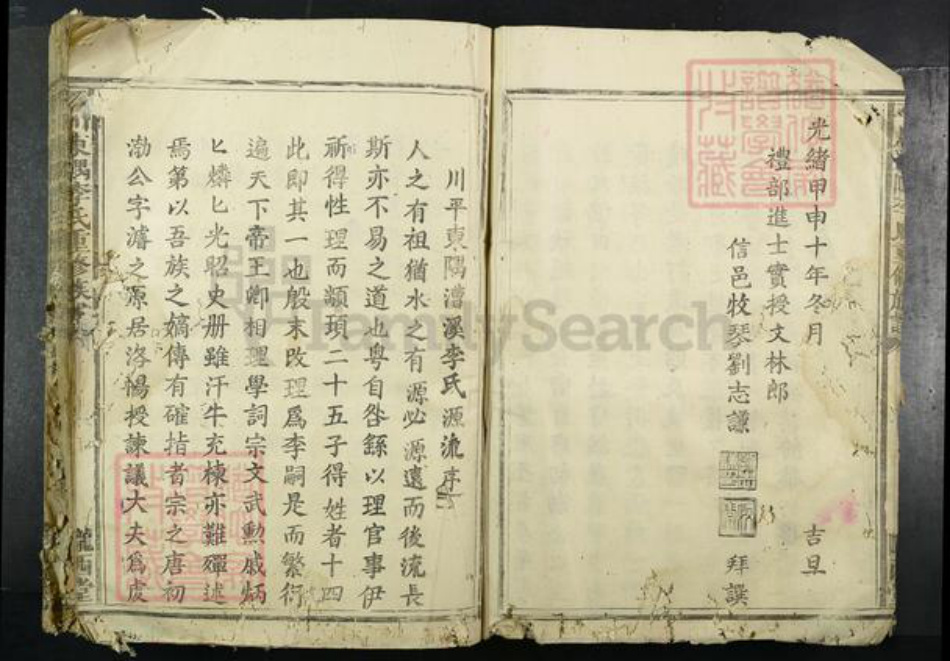 光緒甲申十年冬月　吉旦
禮部進士實授文林郎
信邑牧琴劉志謙　拜譔
川平東隅漕溪李氏源流序
人之有祖猶水之有源必源遠而後流長
斯亦不易之道也粵自咎繇以理官事伊
祈得性理而顓頊二十五子得姓者十四
此即其一也殷末改理爲李嗣是而繁衍
遍天下帝王卿相理學詞宗文武勲戚炳
匕燐匕光昭史册雖汗牛充棟亦難殫述
焉第以吾族之嫡傳有確指者宗之唐初
渤公字濬之源居洛暢授諫議大夫爲虔
東隅李氏重修族
隴西堂
FamilySearch